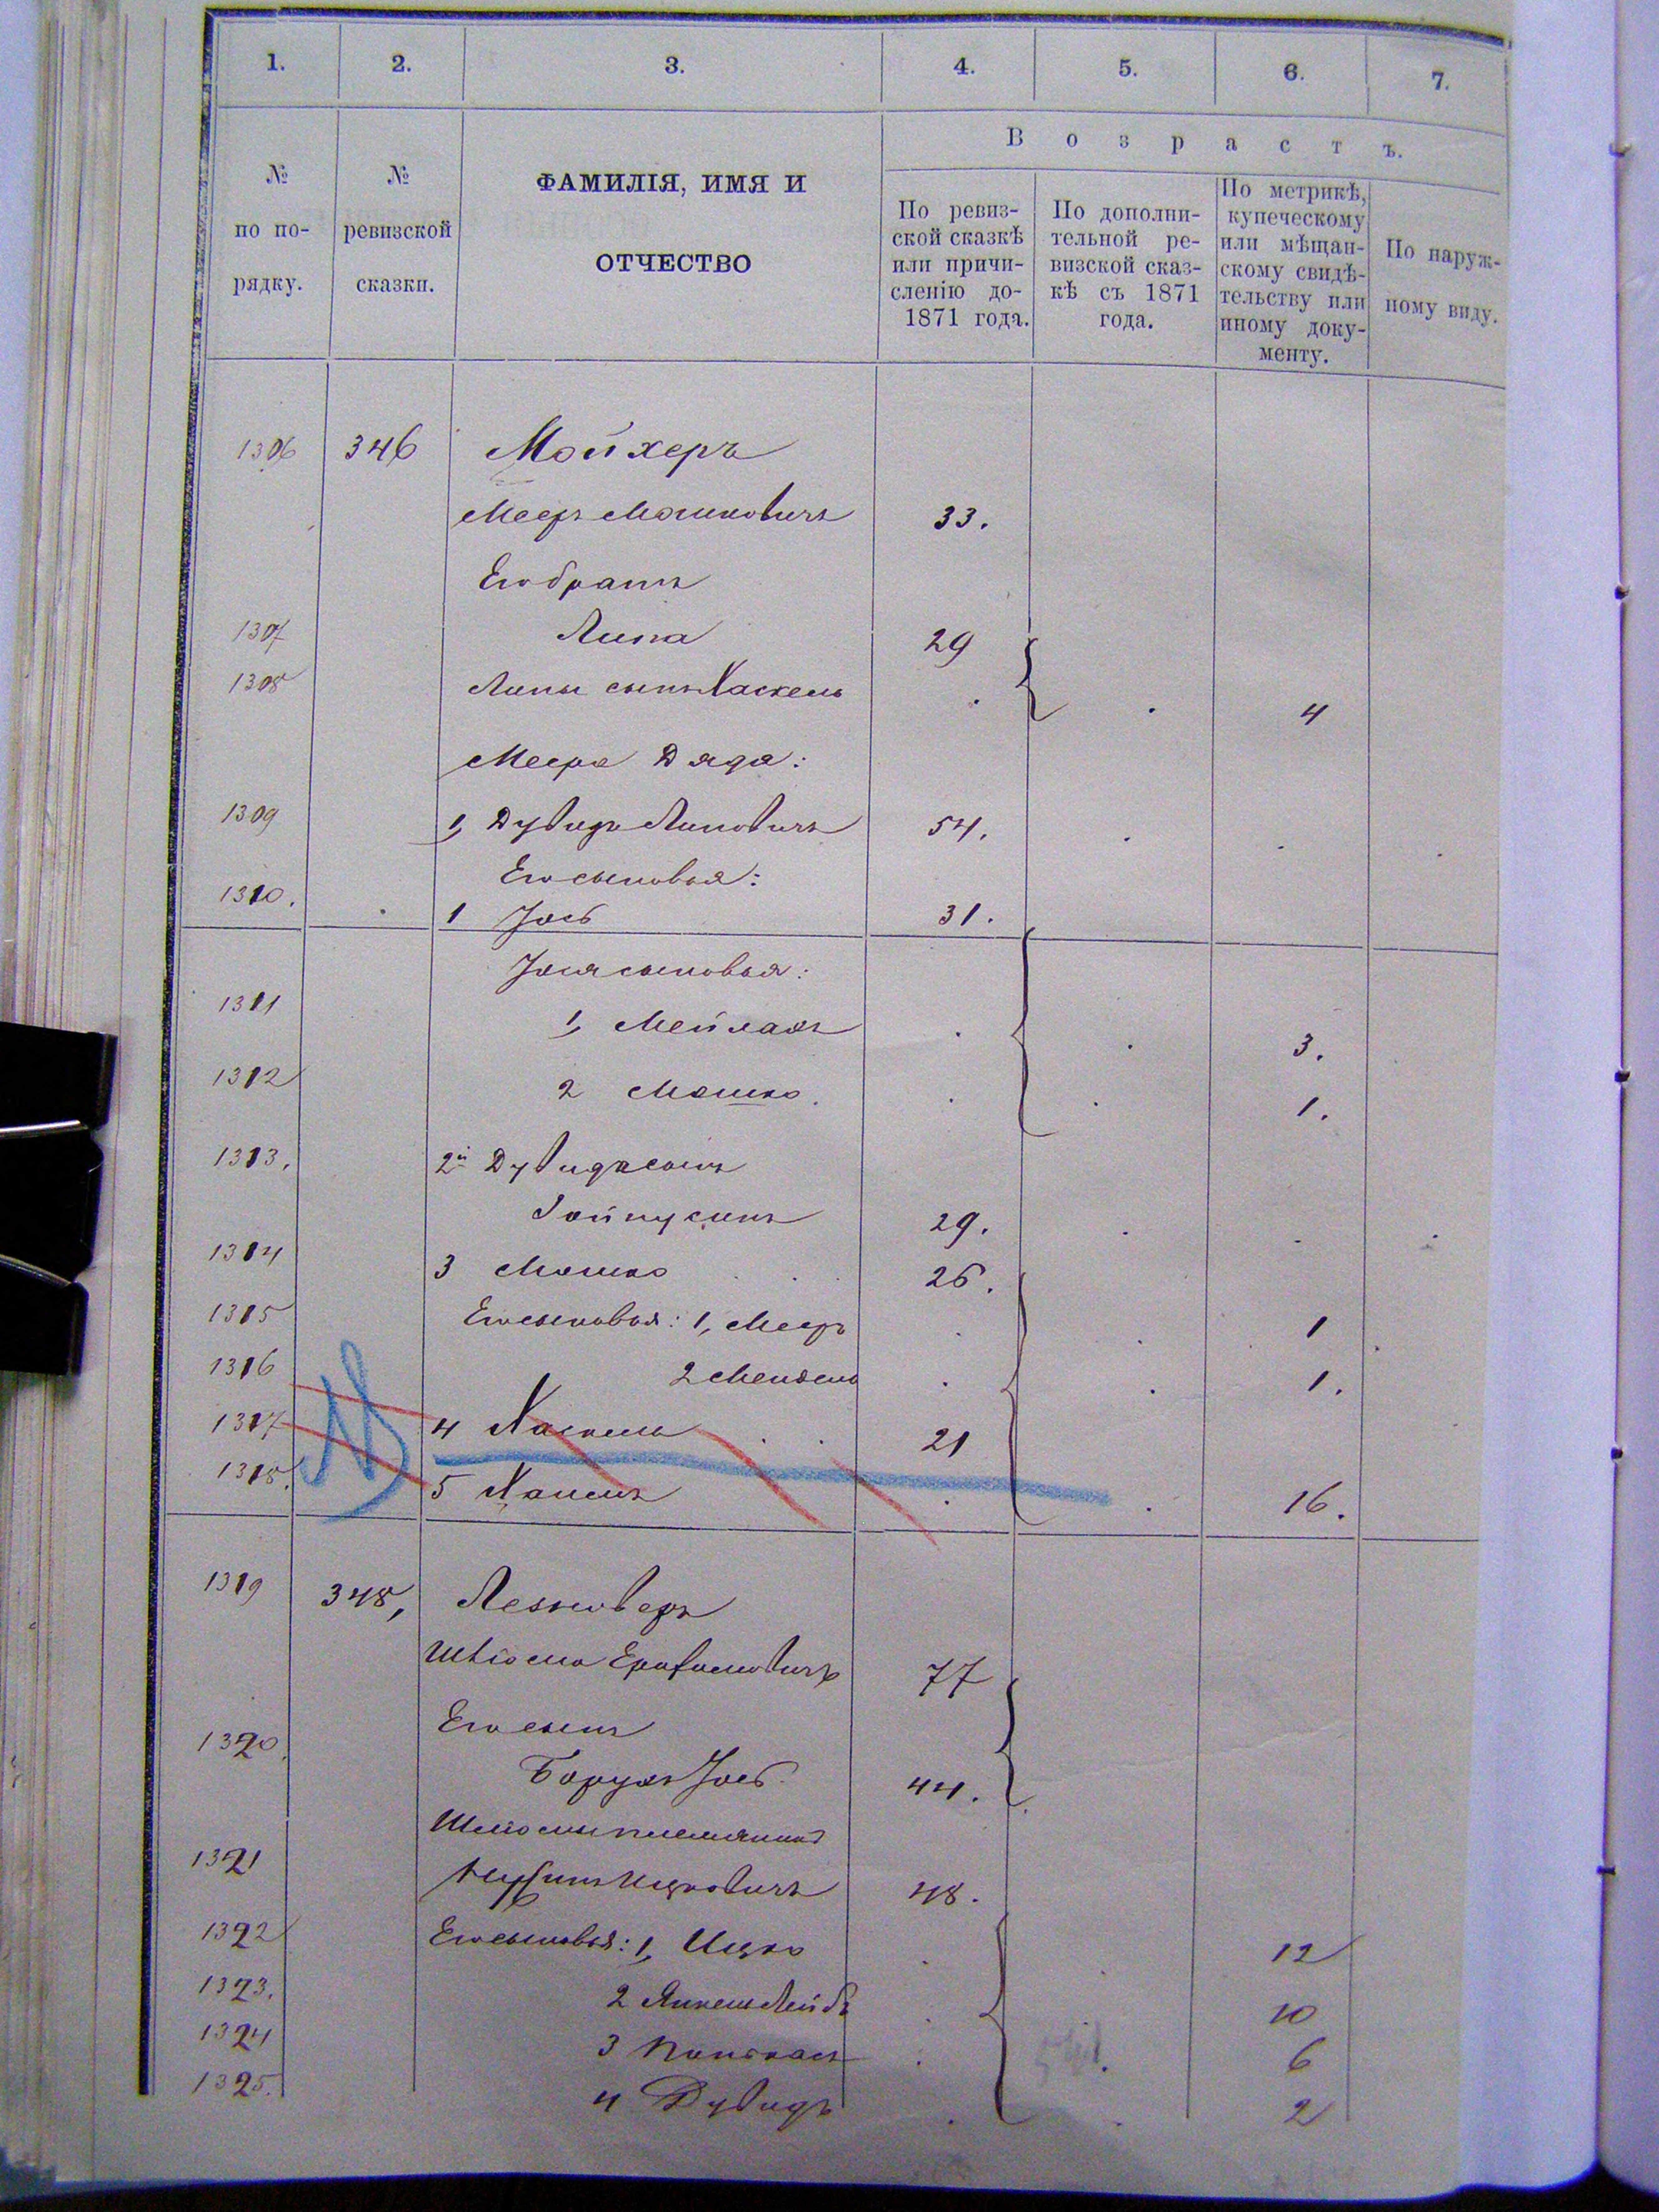 1. 2. 3. 4. 5. 6. 7.
В о з р а с т ъ.
№ по по- рядку.
№ ревизской сказки.
ФАМИЛІЯ, ИМЯ И
ОТЧЕСТВО
По ревиз-
ской сказкѣ
или причи-
сленію до-
1871 года.
По дополни-
тельной ре-
визской сказ-
кѣ съ 1871
года.
По метрикѣ,
купеческому
или мѣщан-
скому свидѣ-
тельству или
иному доку-
менту.
По наруж-
ному виду.
1306 346 Мойхеръ
Мееръ Мошковичъ 33.
Его братъ
1307 Липа 29
1308 Липы сынъ Хаскель 4
Меера Дядя:
1309 1, Дувидъ Липовичъ 54.
Его сыновья:
1310. 1 Іось 31.
Іося сыновья:
1311 1, Мейлахъ 3.
1312 2 Мошко. 1.
1313. 2й Дувида сынъ
Зойнусинъ 29.
1314 3 Мошко 26.
1315 Его сыновья: 1, Мееръ 1
1316 2 Мендель 1.
1317 4 Хаскель 21
1318. 5 Хаимъ 16.
1319 348, Лезновер
77
Его сынъ
1320. Борухъ Іось 44.
Шліомы племянникъ
1321 Нусинъ Ицковичъ 48.
1322 Его сыновья: 1, Ицко 12
1323. 2 Янкель Лейбъ 10
1324 3 Пинхасъ 6
1325. 4 Дувидъ 2